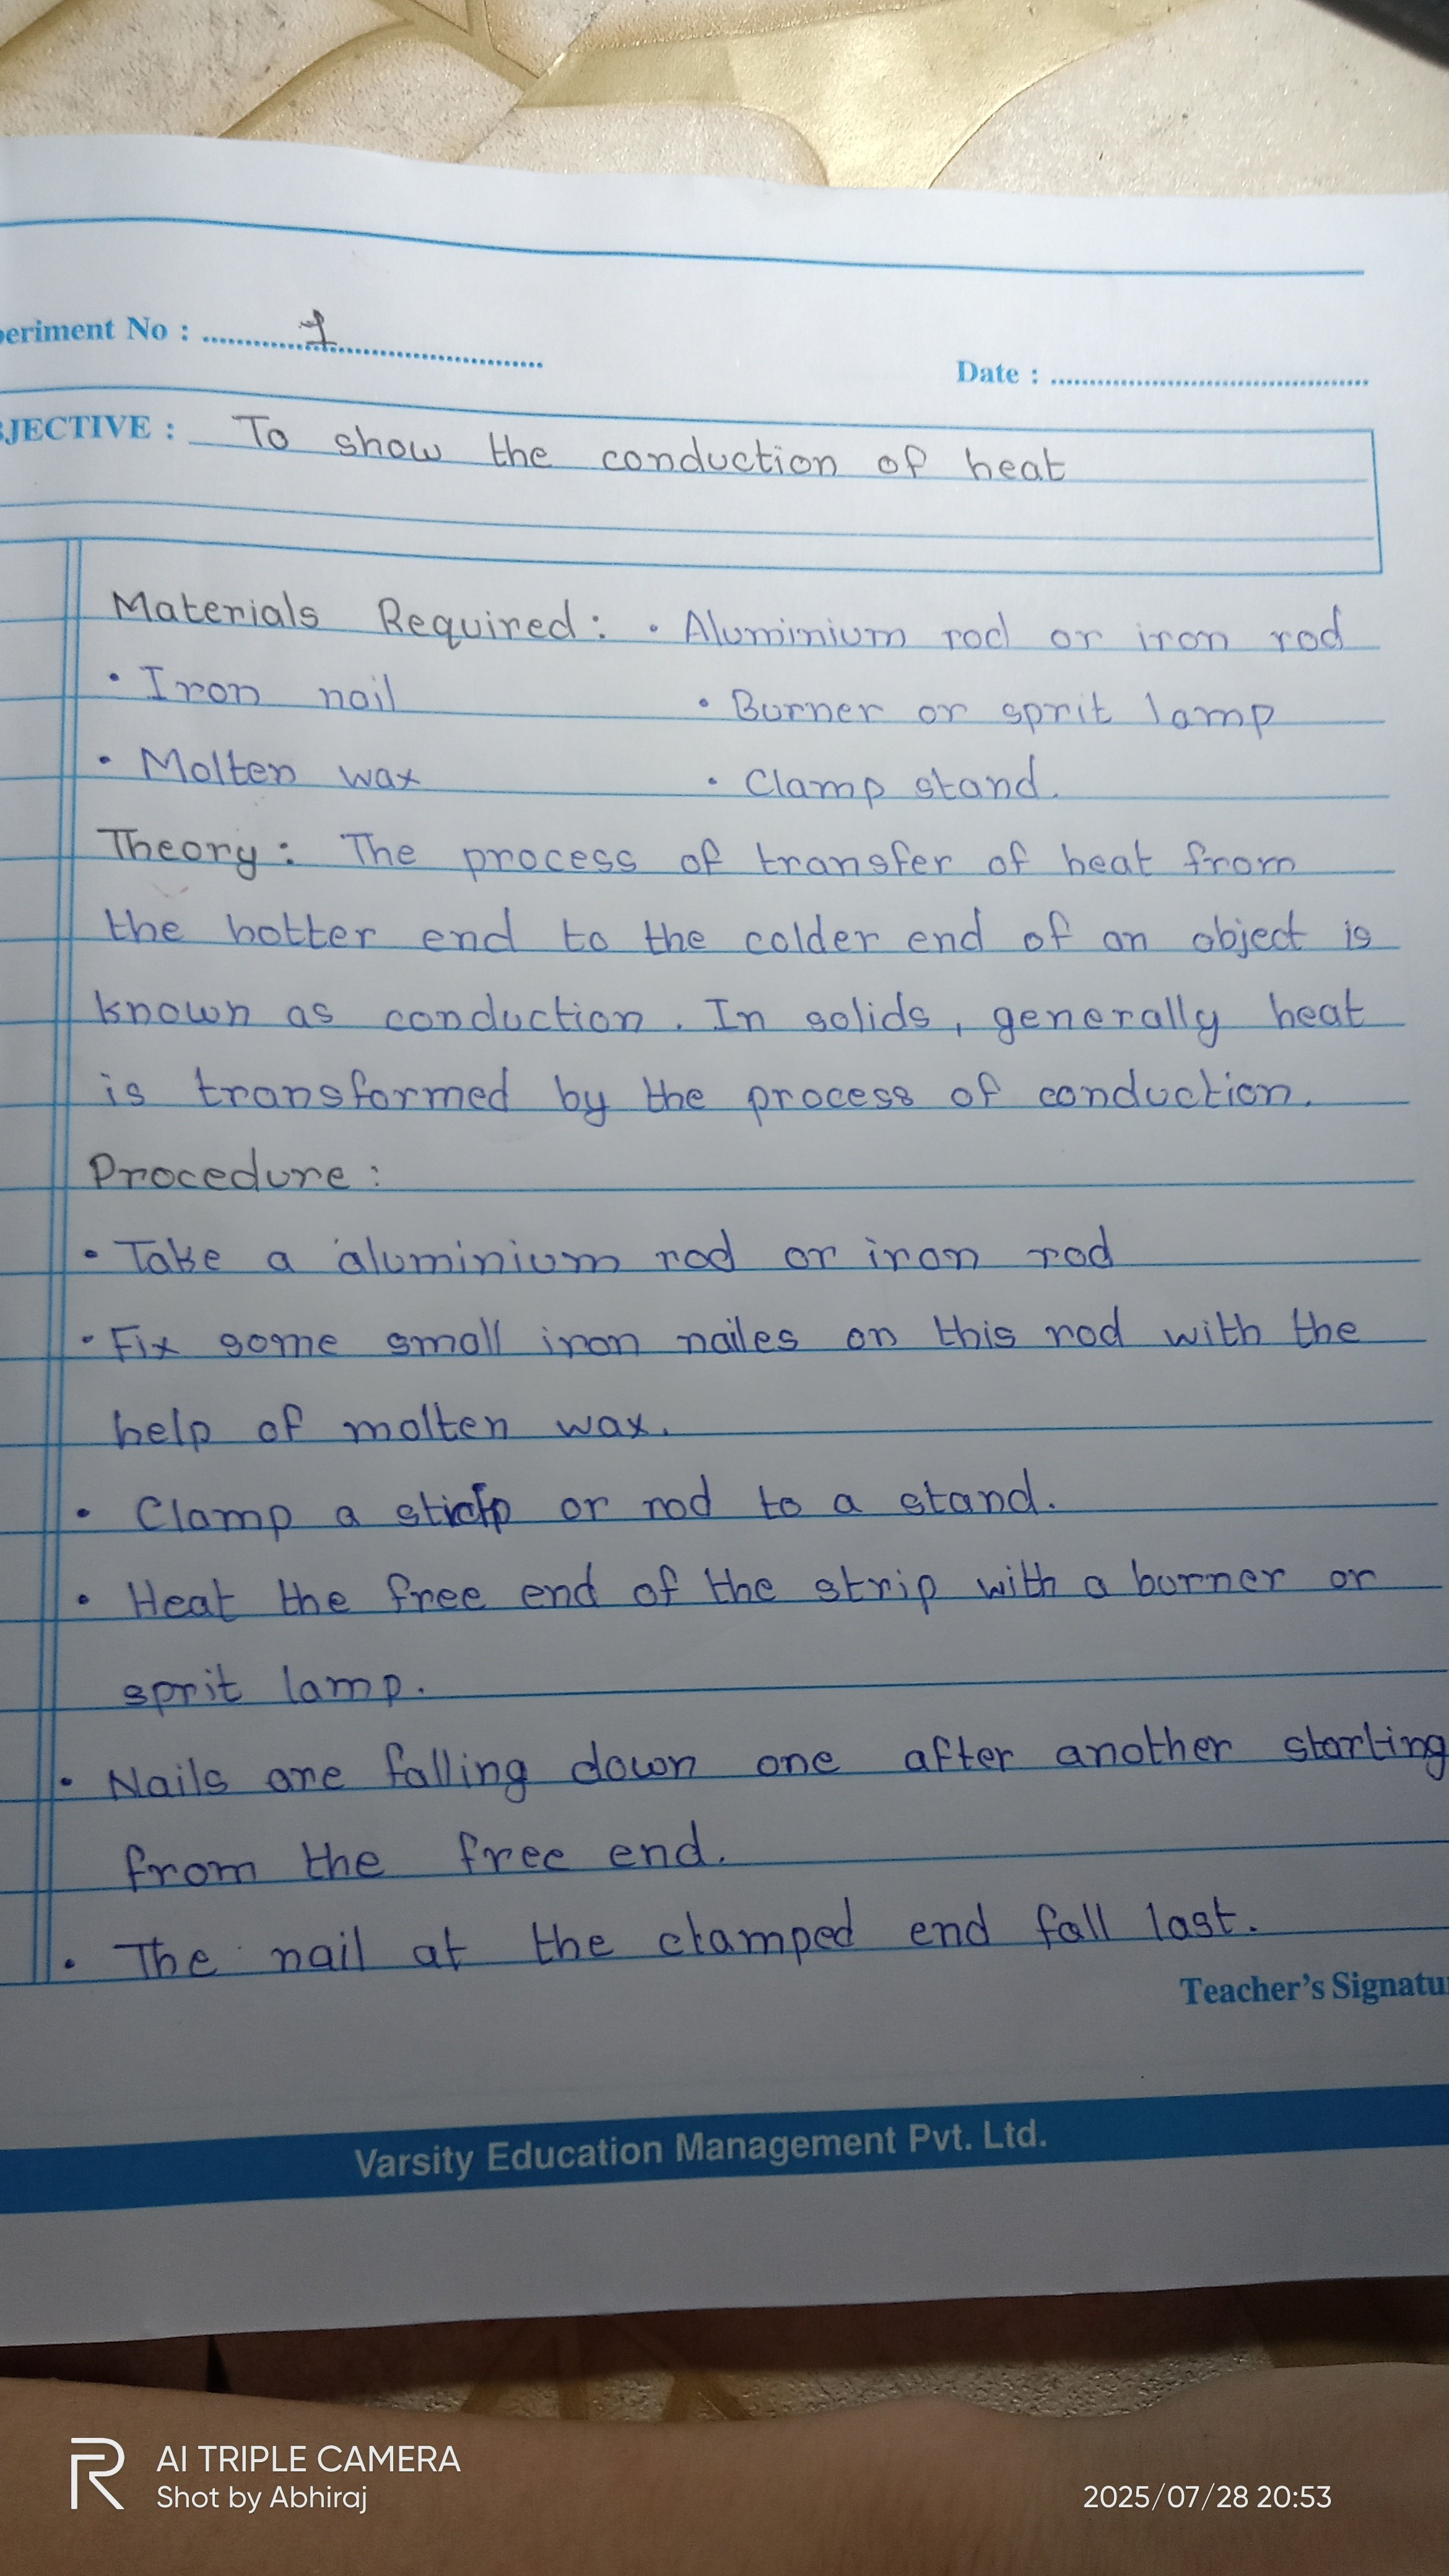 periment No : 1
Date :
BJECTIVE : To show the conduction of heat
Materials Required : • Aluminium rod or iron rod
• Iron nail • Burner or sprit lamp
• Molten wax • Clamp stand.
Theory : The process of transfer of heat from
the hotter end to the colder end of an object is
known as conduction. In solids, generally heat
is transformed by the process of conduction.
Procedure :
• Take a aluminium rod or iron rod
• Fix some small iron nailes on this rod with the
help of molten wax.
• Clamp a or rod to a stand.
• Heat the free end of the strip with a burner or
sprit lamp.
• Nails are falling down one after another starting
from the free end.
• The nail at the clamped end fall last.
Teacher's Signatu
Varsity Education Management Pvt. Ltd.
AI TRIPLE CAMERA
Shot by Abhiraj
2025/07/28 20:53